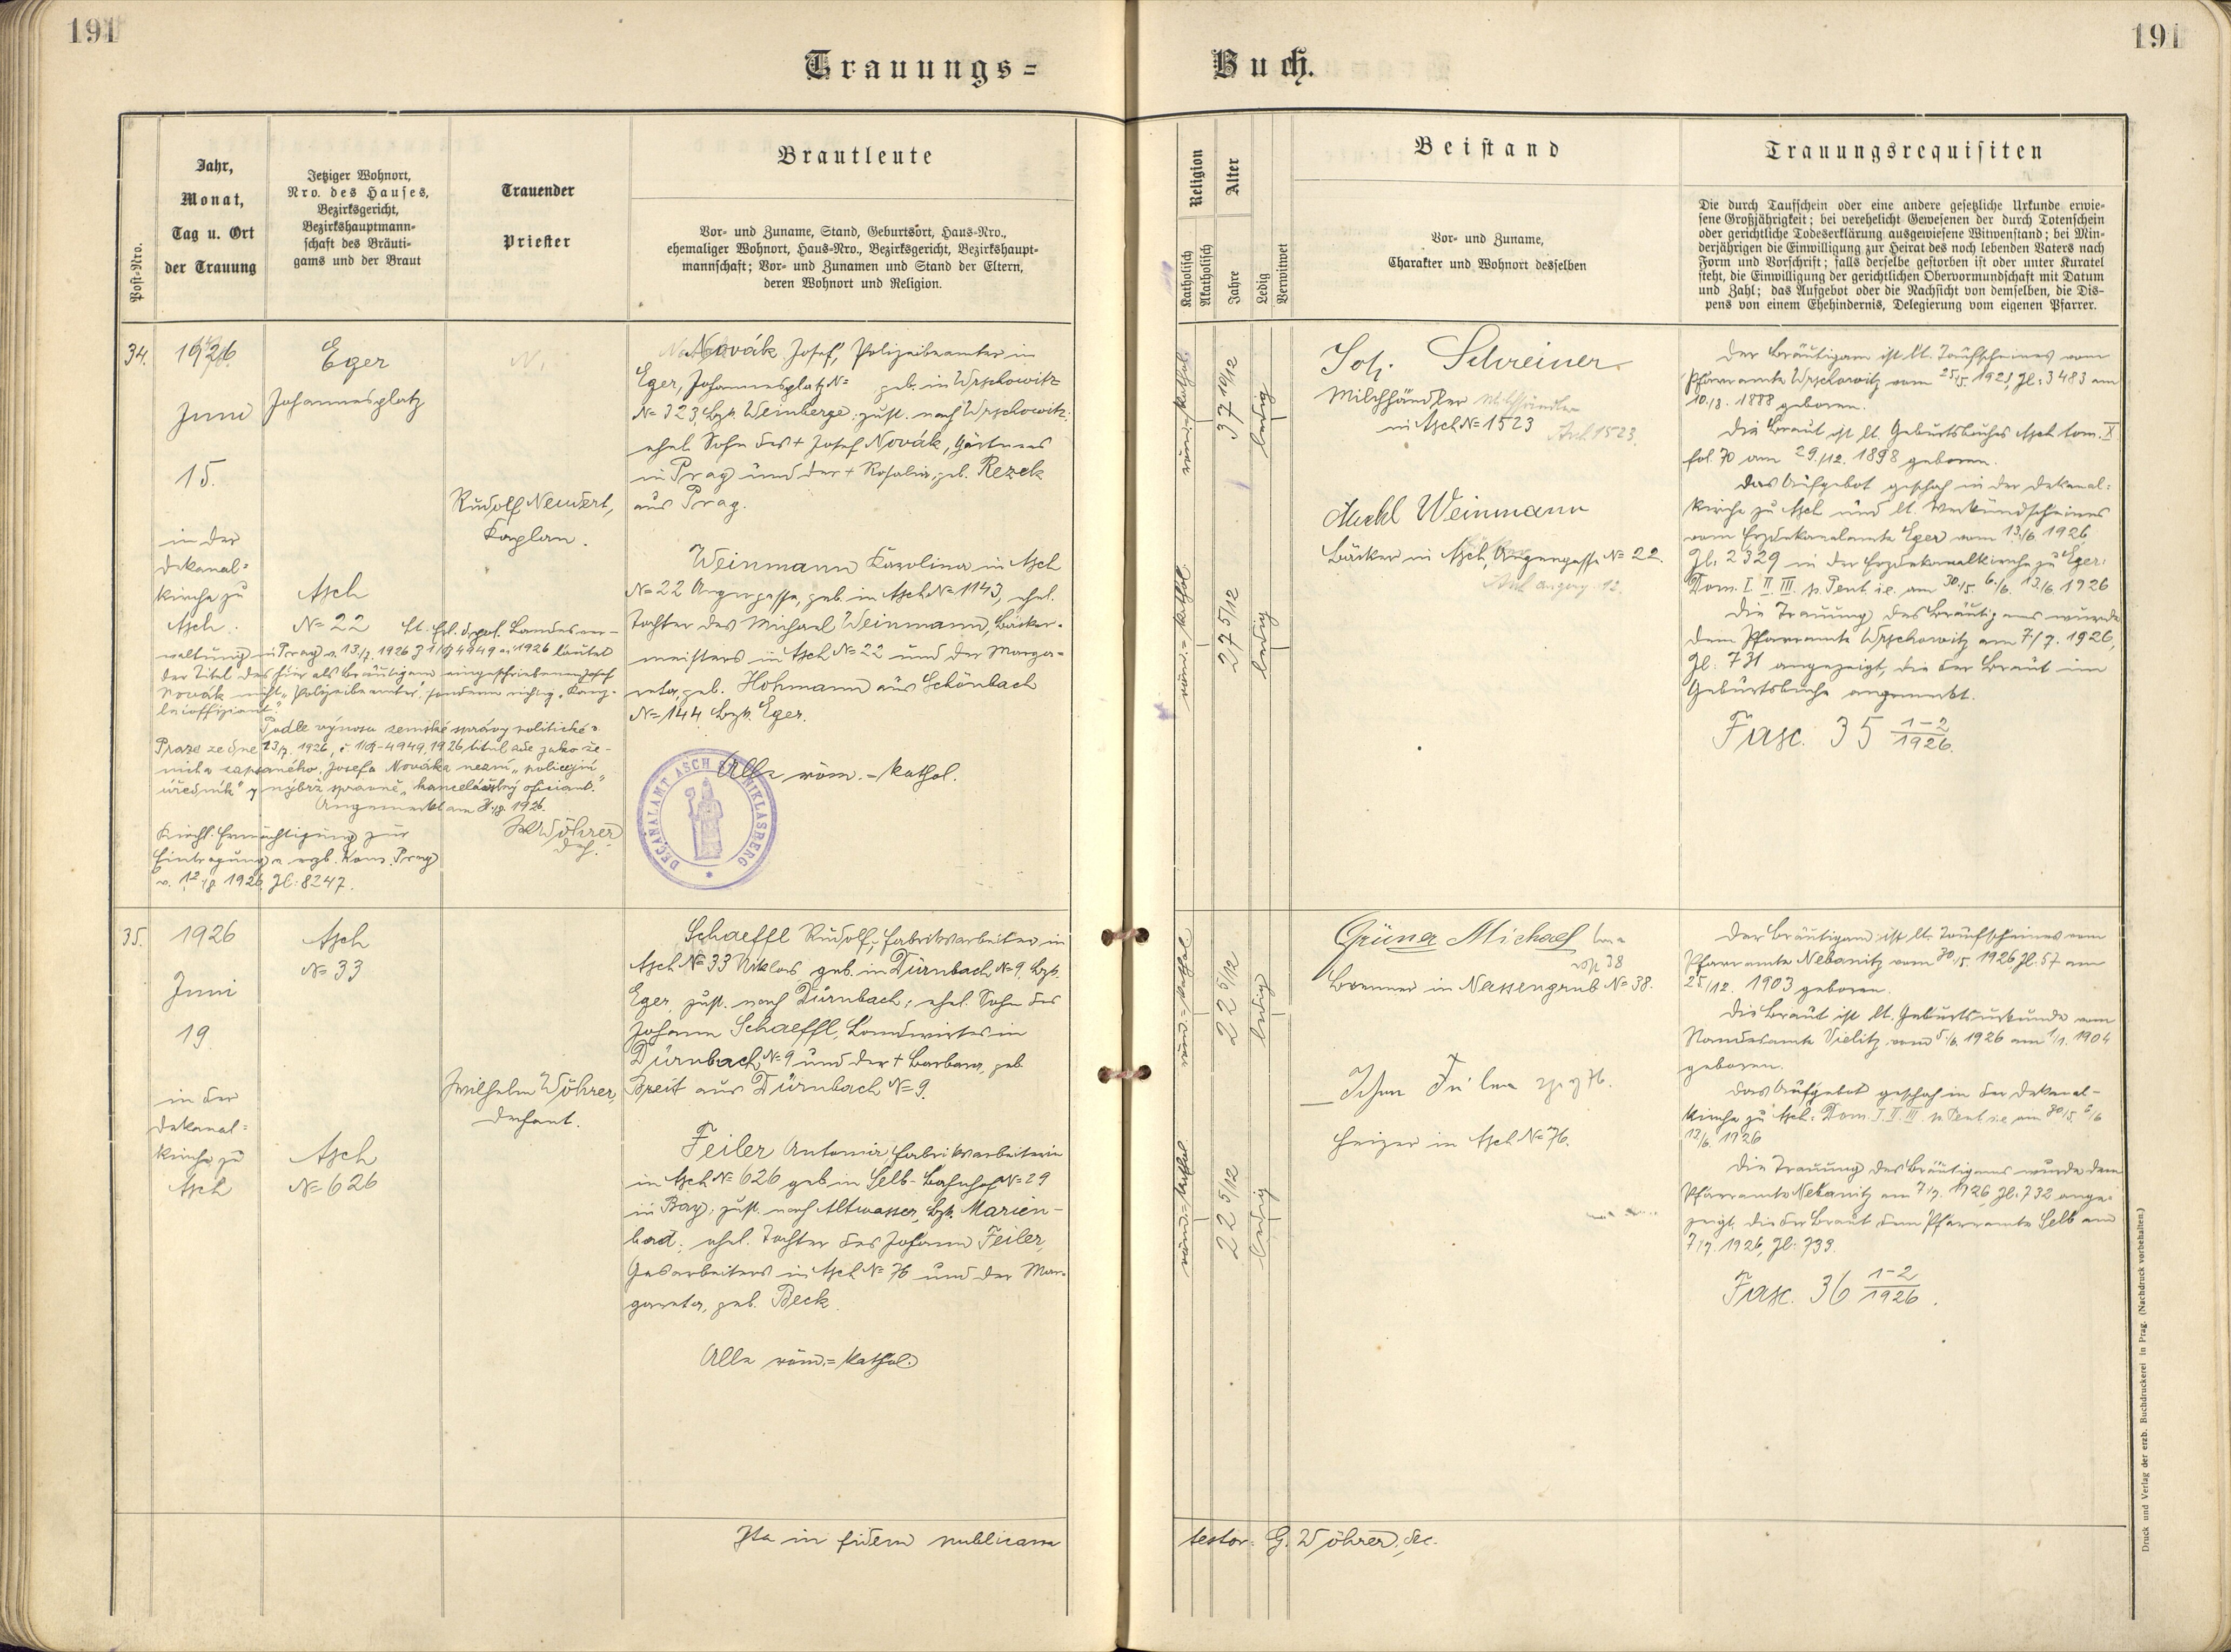 191
191
Trauungs=
Buch.
Post-Nro.
Jahr,
Monat,
Tag u. Ort
der Trauung
Jetziger Wohnort,
Nro. des Hauses,
Bezirksgericht,
Bezirkshauptmann-
schaft des Bräuti-
gams und der Braut
Trauender
Priester
Brautleute
Vor- und Zuname, Stand, Geburtsort, Haus-Nro.,
ehemaliger Wohnort, Haus-Nro., Bezirksgericht, Bezirkshaupt-
mannschaft; Vor- und Zunamen und Stand der Eltern,
deren Wohnort und Religion.
Religion
Katholisch
Akatholisch
Alter
Jahre
Ledig
Verwitwet
Beistand
Vor- und Zuname,
Charakter und Wohnort desselben
Trauungsrequisiten
Die durch Taufschein oder eine andere gesetzliche Urkunde erwie-
sene Großjährigkeit; bei verehelicht Gewesenen der durch Totenschein
oder gerichtliche Todeserklärung ausgewiesene Witwenstand; bei Min-
derjährigen die Einwilligung zur Heirat des noch lebenden Vaters nach
Form und Vorschrift; falls derselbe gestorben ist oder unter Kuratel
steht, die Einwilligung der gerichtlichen Obervormundschaft mit Datum
und Zahl; das Aufgebot oder die Nachsicht von demselben, die Dis-
pens von einem Ehehindernis, Delegierung vom eigenen Pfarrer.
34.
1926
Juni
15.
in der
Dekanal=
kirche zu
Asch.
Eger
Johannesplatz
Asch
N= 22
Rudolf Neudert,
Kaplan.
Novák Josef, Polizeibeamter in
Eger, Johannesplatz N= geb. in Wrschowitz
N= 323, Bzk. Weinberge, zust. nach Wrschowitz:
ehel. Sohn des + Josef Novák, Gärtners
in Prag und der + Rosalia, geb. Rezek
aus Prag.
Weinmann Karolina in Asch
N= 22 Angergasse, geb. in Asch N= 1143, ehel.
Tochter des Michael Weinmann, Bäcker-
meisters in Asch N= 22 und der Marga-
reta, geb. Hohmann aus Schönbach
N= 144 Bzk. Eger.
Alle röm.=kathol.
DECANALAMT ASCH ST. NIKLASBERG
lt. Erl. d. pol. Landesver-
waltung in Prag v. 13/7. 1926 4949 1926 lautet
der Titel des hier als Bräutigam eingeschriebenen Josef
Novák nicht "Polizeibeamter", sondern richtig "Kanz-
leioffiziant".
Podle výnosu zemské správy politické v
Praze ze dne 13/7. 1926, č. 4949, 1926 titul zde jako že-
nicha zapsaného Josefa Nováka nezní "policejní
úředník", nýbrž správně "kancelářský oficiant."
Angemerkt am 1926.
Wöhrer
Dech.
Kirchl. Ermächtigung zur
Eintragung v. erzb. Kons. Prag
v. 12/8. 1926, Zl: 8247.
röm.=kathol.
37 10/12
ledig
röm.=kathol.
27 5/12
ledig
Joh. Schreiner
Milchhändler Milchhändler
in Asch N= 1523
Asch 1523.
Weinmann
Bäcker in Asch, Angergasse N= 22.
Der Bräutigam ist lt. Taufscheines vom
Pfarramte Wrschowitz vom 25/5. 1921, Zl: 3483 am
10./8. 1888 geboren.
Die Braut ist lt. Geburtsbuches Asch tom. X
fol. 70 am 29./12. 1898 geboren.
Das Aufgebot geschah in der Dekanal=
kirche zu Asch und lt. Verkündscheines
vom Erzdekanalamte Eger vom 13./6. 1926
Zl: 2329 in der Erzdekanalkirche zu Eger:
Dom. I. II. III. p. Pent. i.e. am 30./5. 6./6. 13./6. 1926
Die Trauung des Bräutigams wurde
dem Pfarramte Wrschowitz am 7/7. 1926,
Zl: 731 angezeigt, die der Braut im
Geburtsbuche angemerkt.
Fasc. 35 1-2/1926.
35.
1926
Juni
19.
in der
Dekanal=
kirche zu
Asch
Asch
N= 33
Asch
N= 626
Wilhelm Wöhrer,
Dechant.
Schaeffl Rudolf, Fabriksarbeiter in
Asch N= 33 Niklas, geb. in Dürnbach N= 9, Bzk.
Eger, zust. nach Dürnbach; ehel. Sohn des
Johann Schaeffl, Landwirtes in
Dürnbach N= 9 und der + Barbara, geb.
Breit aus Dürnbach N= 9.
Feiler Antonia, Fabriksarbeiterin
in Asch N= 626 geb. in Selb-Bahnhof N= 29
in Bay., zust. nach Altwasser, Bzk. Marien-
bad; ehel. Tochter des Johann Feiler,
Gasarbeiters in Asch N= 76 und der Mar-
gareta, geb. Beck.
Alle röm.=kathol.
röm.=kathol.
22 5/12
ledig
röm.=kathol.
22 5/12
ledig
Grüner Michael
38
Brenner in Nassengrub N= 38.
76.
Heizer in Asch N= 76.
Der Bräutigam ist lt. Taufscheines vom
Pfarramte Nebanitz vom 30/5. 1926 Zl. 57 am
25/12. 1903 geboren.
Die Braut ist lt. Geburtsurkunde vom
Standesamte Vielitz vom 5./6. 1926 am 1/1. 1904
geboren.
Das Aufgebot geschah in der Dekanal-
kirche zu Asch: Dom. I. II. III. p. Pent. i.e. am 30/5. 6/6
13/6. 1926
Die Trauung des Bräutigams wurde dem
Pfarramte Nebanitz am 7/7. 1926, Zl: 732 ange-
zeigt, die der Braut dem Pfarramte Selb am
7/7. 1926, Zl: 733.
Fasc. 36 1-2/1926.
Ita in fidem publicam
testor. G. Wöhrer, dec.
Druck und Verlag der erzb. Buchdruckerei in Prag. (Nachdruck vorbehalten.)